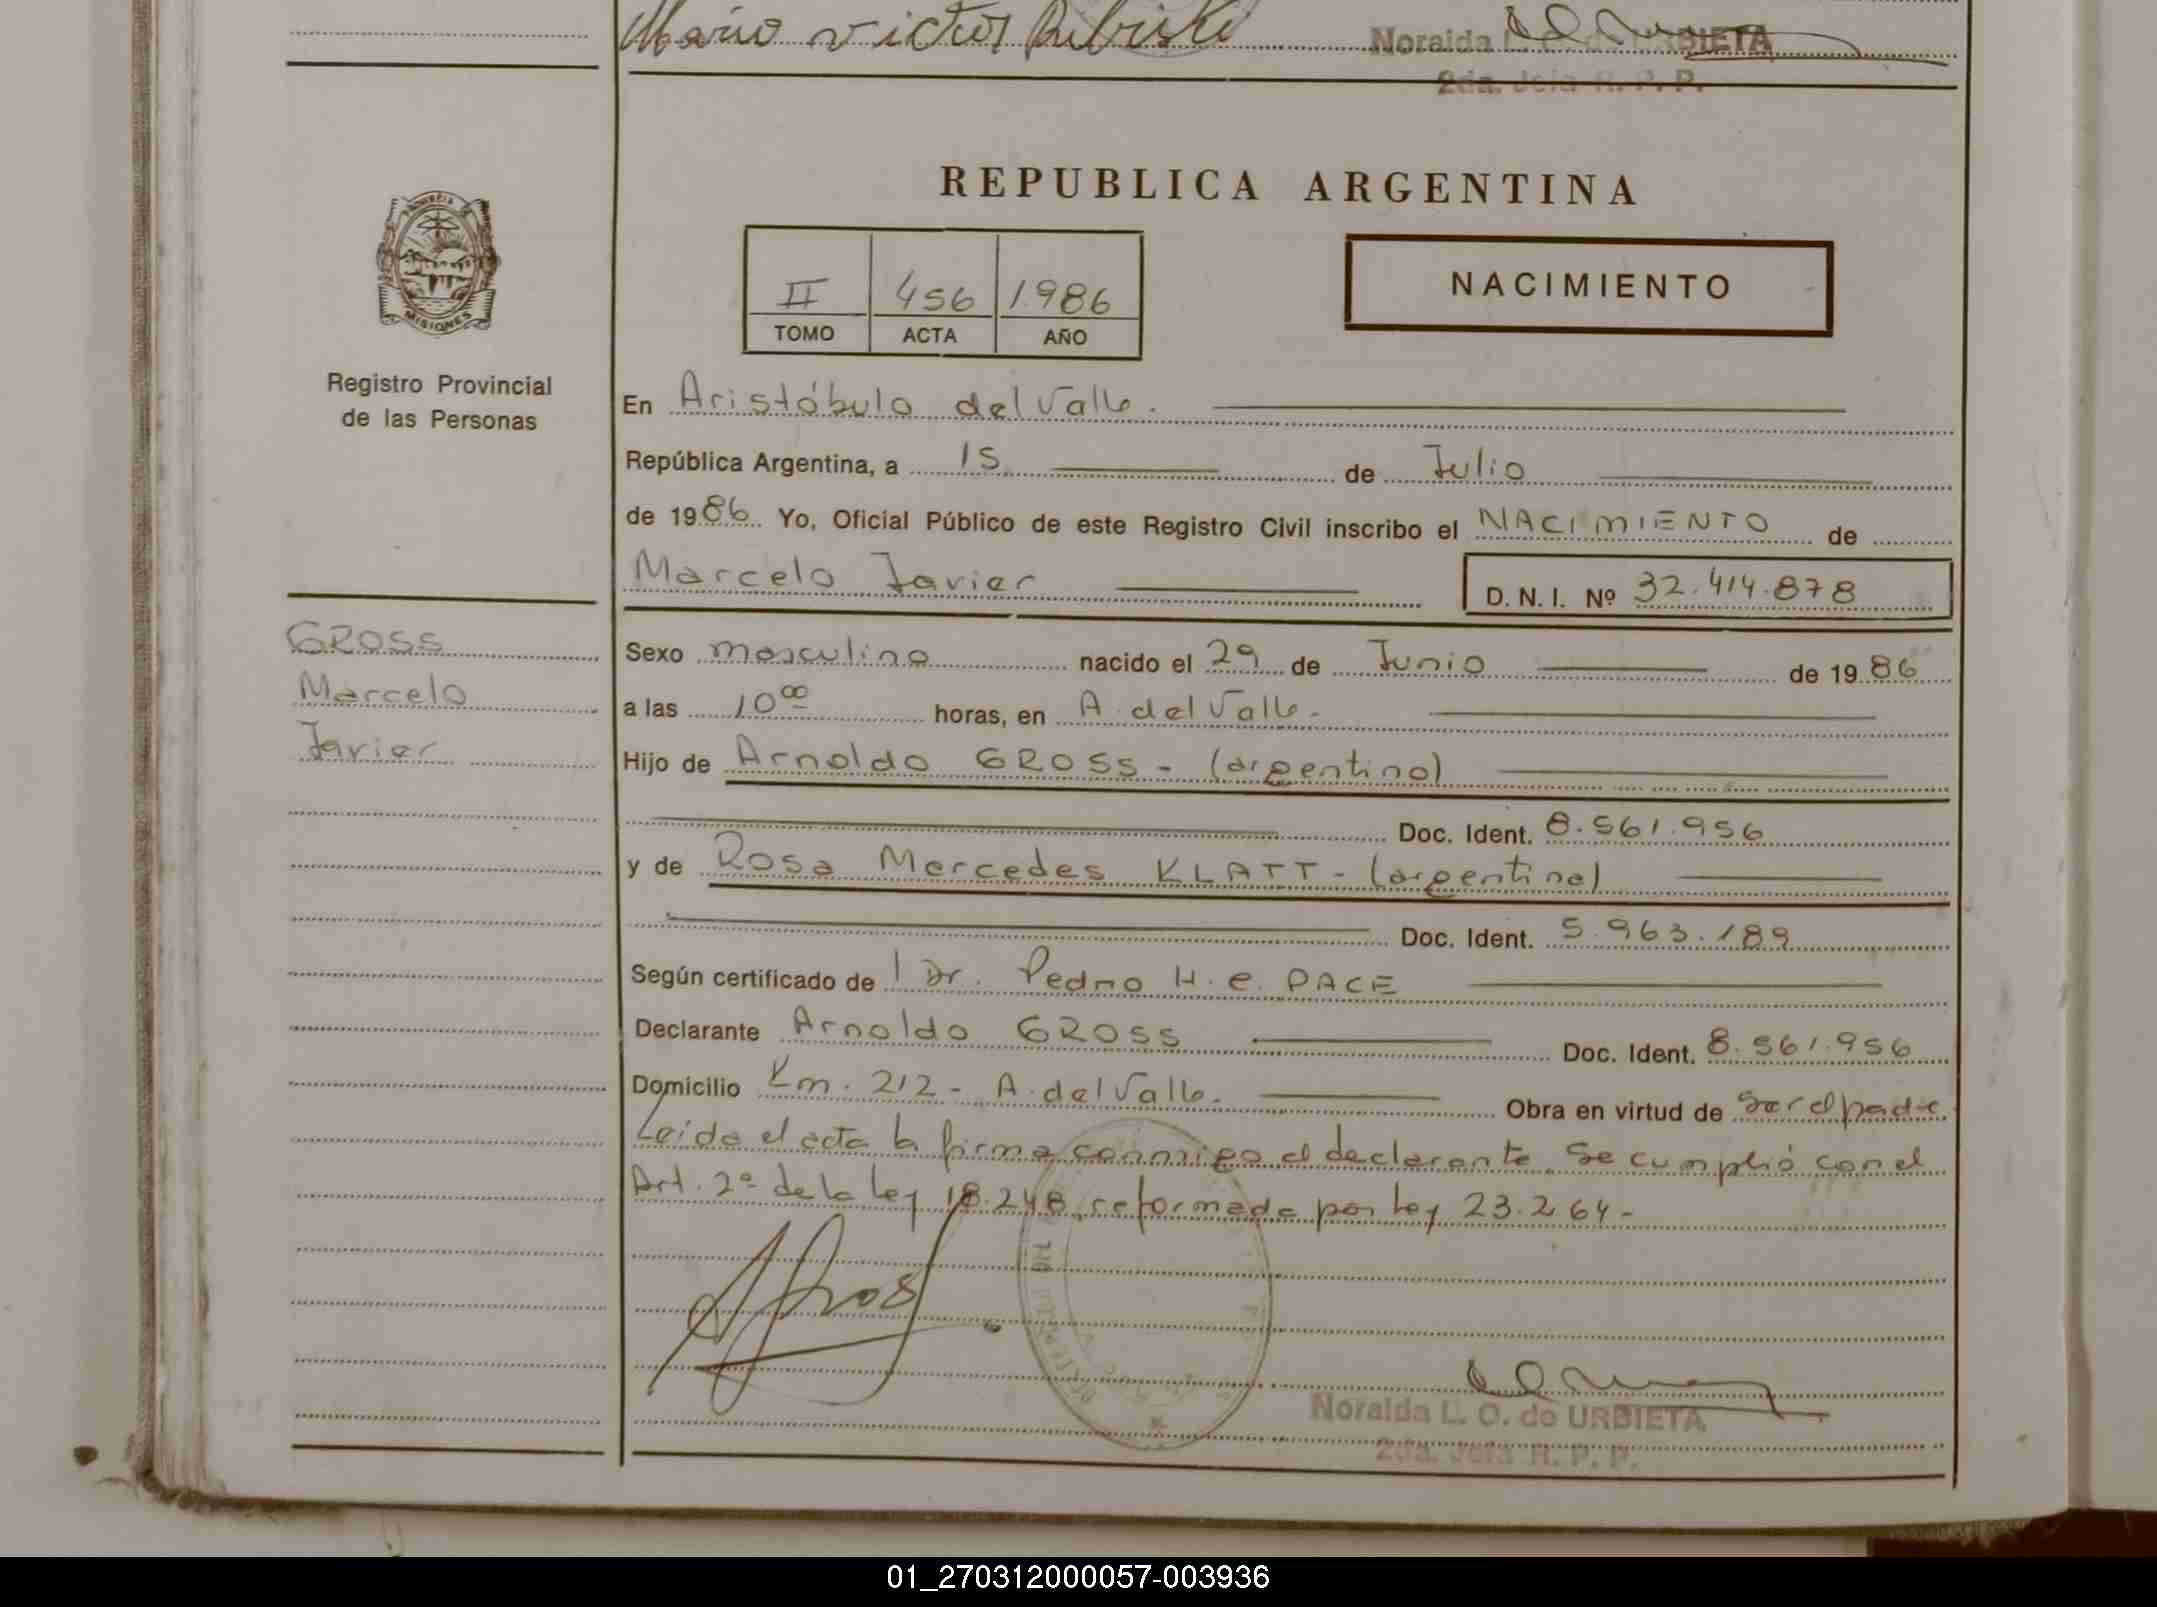 Mario Victor
Noralda L. O. de URBIETA
2da. Jefa R. P. P.
PROVINCIA DE
MISIONES
Registro Provincial
de las Personas
REPUBLICA ARGENTINA
II 456 1986
TOMO ACTA AÑO
NACIMIENTO
En Aristóbulo del Valle.
República Argentina, a 15 de Julio
de 1986. Yo, Oficial Público de este Registro Civil inscribo el NACIMIENTO de
Marcelo Javier D. N. I. Nº 32.414.878
GROSS
Marcelo
Javier
Sexo masculino nacido el 29 de Junio de 1986
a las 10 00 horas, en A. del Valle.
Hijo de Arnoldo GROSS - (argentino)
Doc. Ident. 8.561.956
y de Rosa Mercedes KLATT - (argentina)
Doc. Ident. 5.963.189
Según certificado de l Dr. Pedro H. e. PACE
Declarante Arnoldo GROSS Doc. Ident. 8.561.956
Domicilio Km. 212 - A. del Valle. Obra en virtud de ser el padre.
Leída el acta la firma conmigo el declarante. Se cumplió con el
Art. 2º de la ley 18.248, reformada por ley 23.264 -
Noralda L. O. de URBIETA
2da. Jefa R. P. P.
01_270312000057-003936